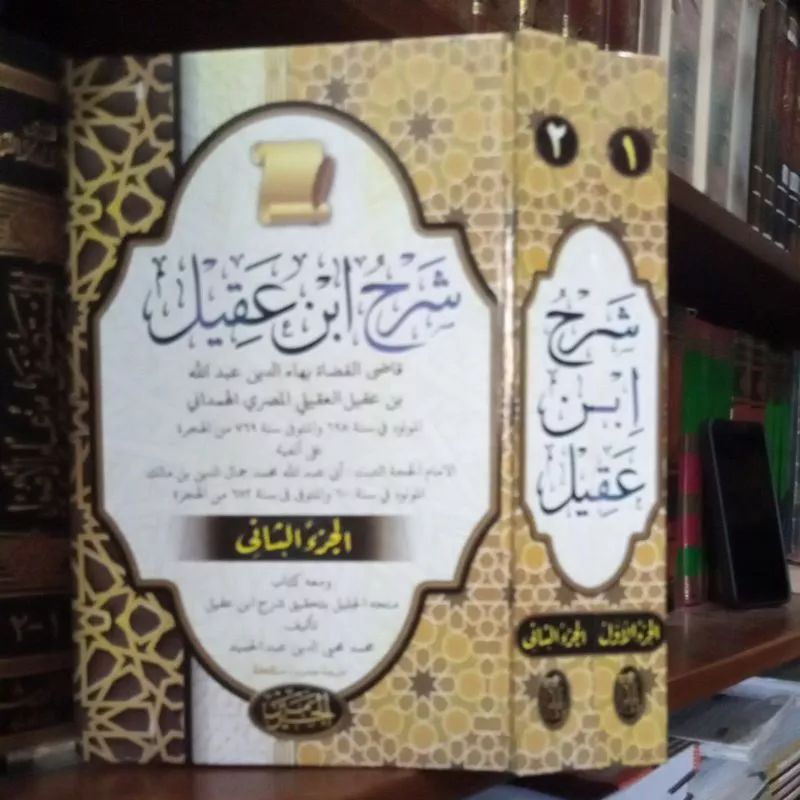 شرح ابن عقيل
قاضى القضاة بهاء الدين عبد الله
بن عقيل العقيلي المصري الهمداني
المولود في سنة ٦٩٨ والمتوفى سنة ٧٦٩ من الهجرة
على ألفية
الامام الحجة الثبت: أبي عبد الله محمد جمال الدين بن مالك
المولود في سنة ٦٠٠ والمتوفى في سنة ٦٧٢ من الهجرة
الجزء الثاني
ومعه كتاب
منحة الجليل بتحقيق شرح ابن عقيل
تأليف
محمد محيي الدين عبد الحميد
١
٢
شرح
ابن
عقيل
الجزء الأول
الجزء الثاني
١-٢